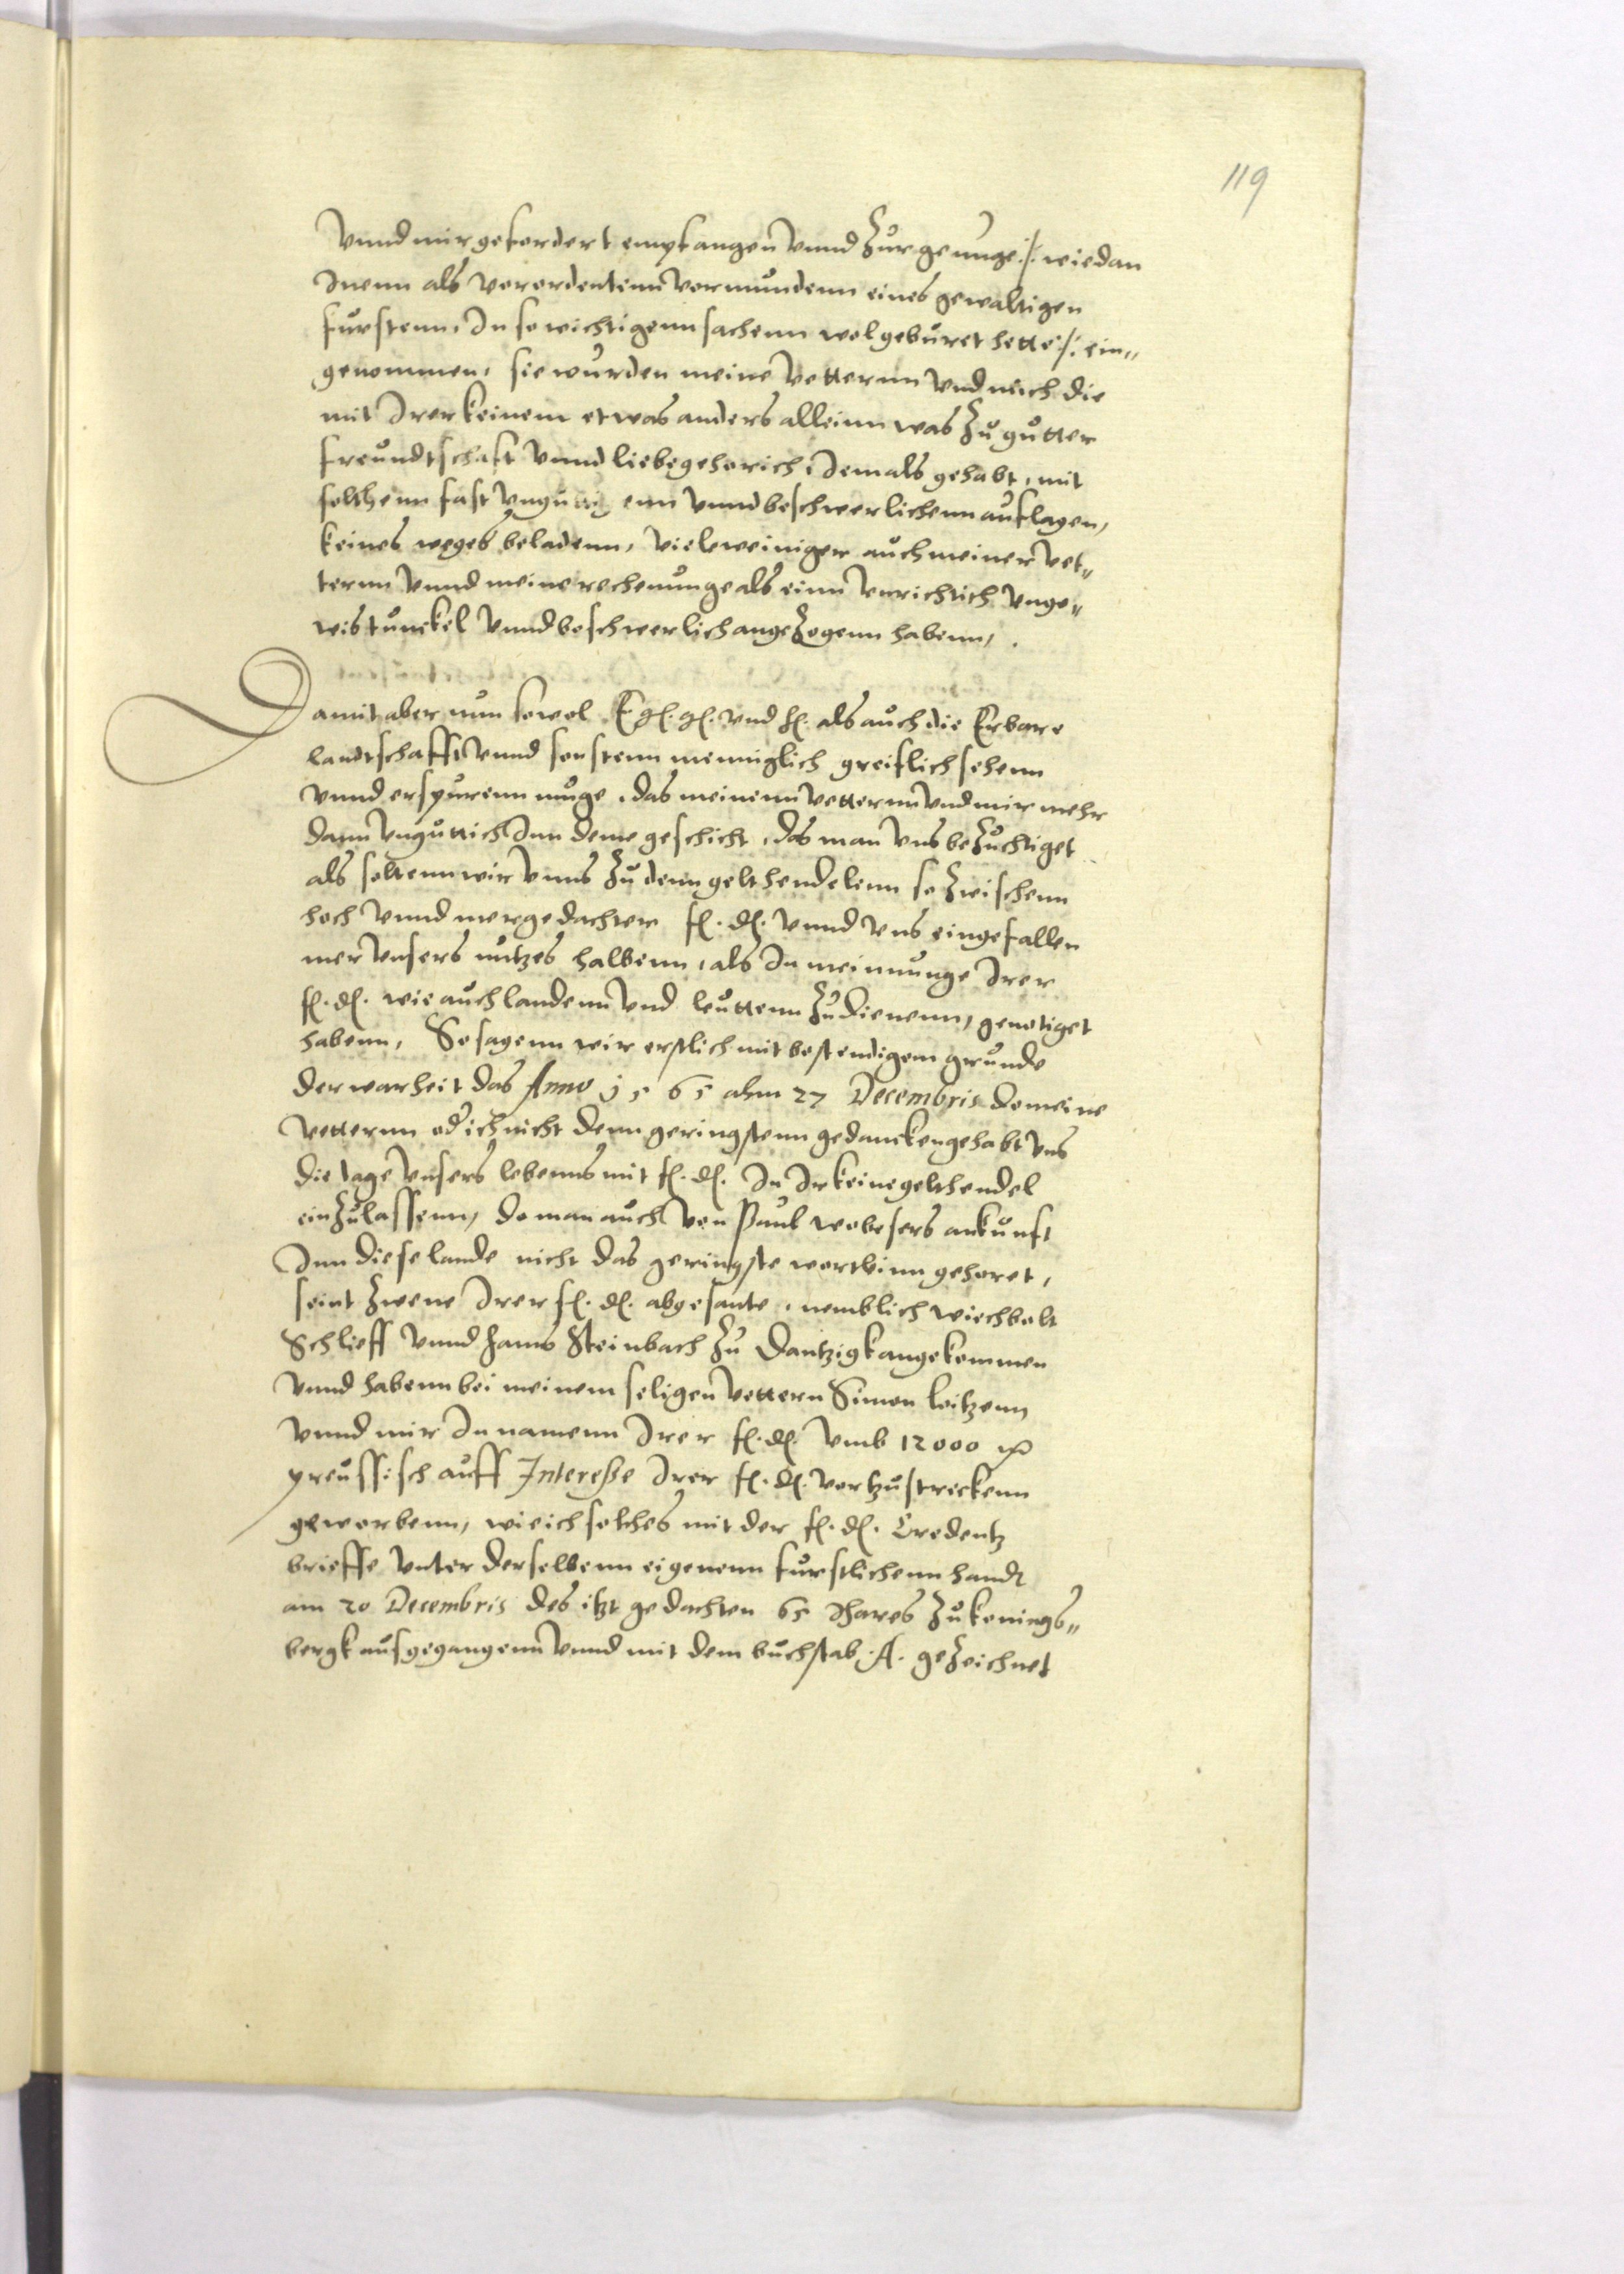 119
vnnd mir gefordert empfangen vnnd zur genuge :/: wie dan
Inenn als verordentenn vormundenn eines gewaltigen
furstenn, In so wichtigenn sachenn wol geburet hette :/: ein„
genommen, sie wurden meine vetternn vnd mich die
mit Irer keinem etwas anders alleinn was zu gutter
freundtschaft vnnd liebe gehorich, Jemals gehabt, mit
solchenn fast vnguttigenn vnnd beschwerlichenn auflagen,
keines weges beladenn, viel weiniger auch meiner vet„
ternn vnnd meine rechenunge als einn vnrichtich vnge„
wis tunckel vnnd beschwerlich angezogenn habenn,
Damit aber nun sowol E gl. gl. vnd fl. als auch die Erbare
landtschafft vnnd sonstenn menniglich greiflich sehenn
vnnd erspurenn muge, das meinenn vetternn vnd mir mehr
dann vnguttich Inn deme geschicht, das man vns bezuchtiget
als soltenn wir vnns zu denn gelthendelenn so zwischenn
hoch vnnd mergedachter fl. dl. vnnd vns eingefallen
mer vnsers nutzes halbenn, als In meinnunge Irer
fl. dl. wie auch landenn vnd leuttenn zu dienenn, genotiget
habenn, So sagenn wir erstlich mit bestendigem grunde
der warheit das Anno 1565 ahm 27 Decembris do meine
vetternn oder ich nicht denn geringstenn gedancken gehabt vns
die tage vnsers lebenns mit fl. dl. In Irkeine gelthendel
einzulassenn, do man auch von Paul wobesers ankunft
Inn diese lande nicht das geringste wortlinn gehoret,
seint zwene Irer fl. dl. abgesante, nemblich wiechbolt
Schlieff vnnd Hanns Steinbach zu Dantzigk angekommen
vnnd habenn bei meinem seligen vettern Simon loitzenn
vnnd mir In namenn Irer fl. dl. vmb 12000
preussisch auff Interesse Irer fl. dl. vortzustreckenn
geworbenn, wie ich solches mit der fl. dl. Credentz
brieffe vnter derselbenn eigenenn furstlichenn handt
am 20 Decembris des itzt gedachten 65 Jhares zu konings„
bergk ausgegangenn vnnd mit dem buchstab .A. gezeichnet